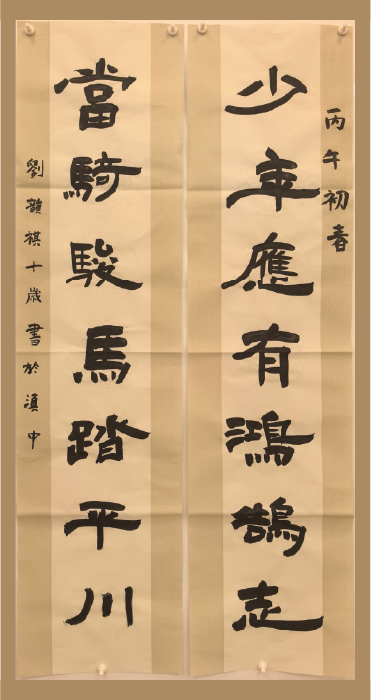 丙午初春
少年應有鴻鵠志
當騎駿馬踏平川
劉韻祺十歲書於滇中